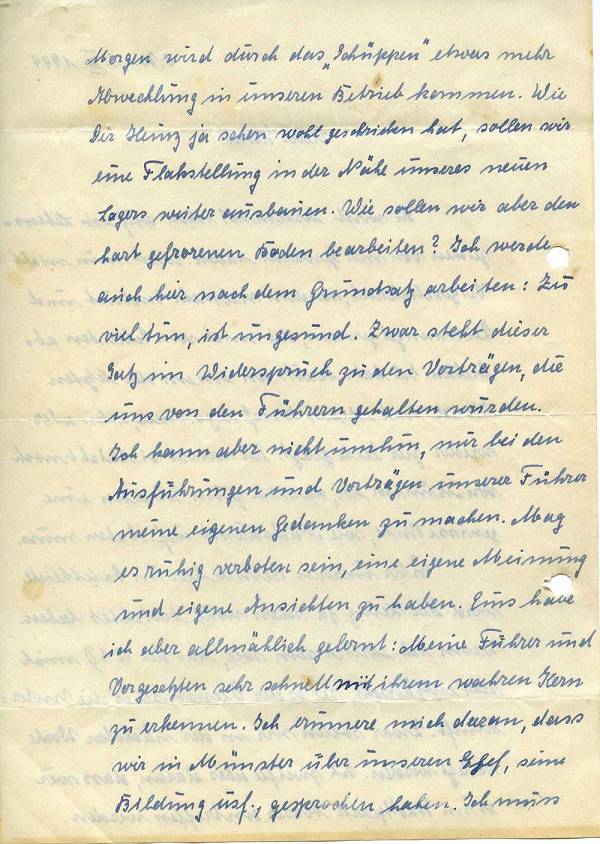 Morgen wird durch das "Schüppen" etwas mehr
Abwechlung in unseren Betrieb kommen. Wie
Dir Heinz ja schon wohl geschrieben hat, sollen wir
eine Flakstellung in der Nähe unseres neuen
Lagers weiter ausbauen. Wie sollen wir aber den
hart gefrorenen Boden bearbeiten? Ich werde
auch hier nach dem Grundsatz arbeiten: Zu
viel tun, ist ungesund. Zwar steht dieser
Satz im Widerspruch zu den Vorträgen, die
uns von den Führern gehalten wurden.
Ich kann aber nicht umhin, mir bei den
Ausführungen und Vorträgen unserer Führer
meine eigenen Gedanken zu machen. Mag
es ruhig verboten sein, eine eigene Meinung
und eigene Ansichten zu haben. Eins habe
ich aber allmählich gelernt: Meine Führer und
Vorgesetzten sehr schnell mit ihrem wahren Kern
zu erkennen. Ich erinnere mich daran, dass
wir in Münster über unseren Chef, seine
Bildung usf., gesprochen haben. Ich muss